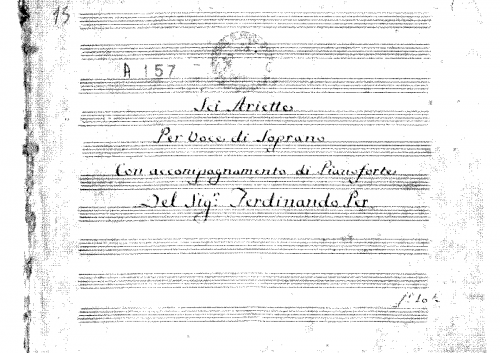 15
A 157
Sei Ariette
Per Voce di Soprano
Con accompagnamento di Pianoforte
Del Sigr. Ferdinando Per